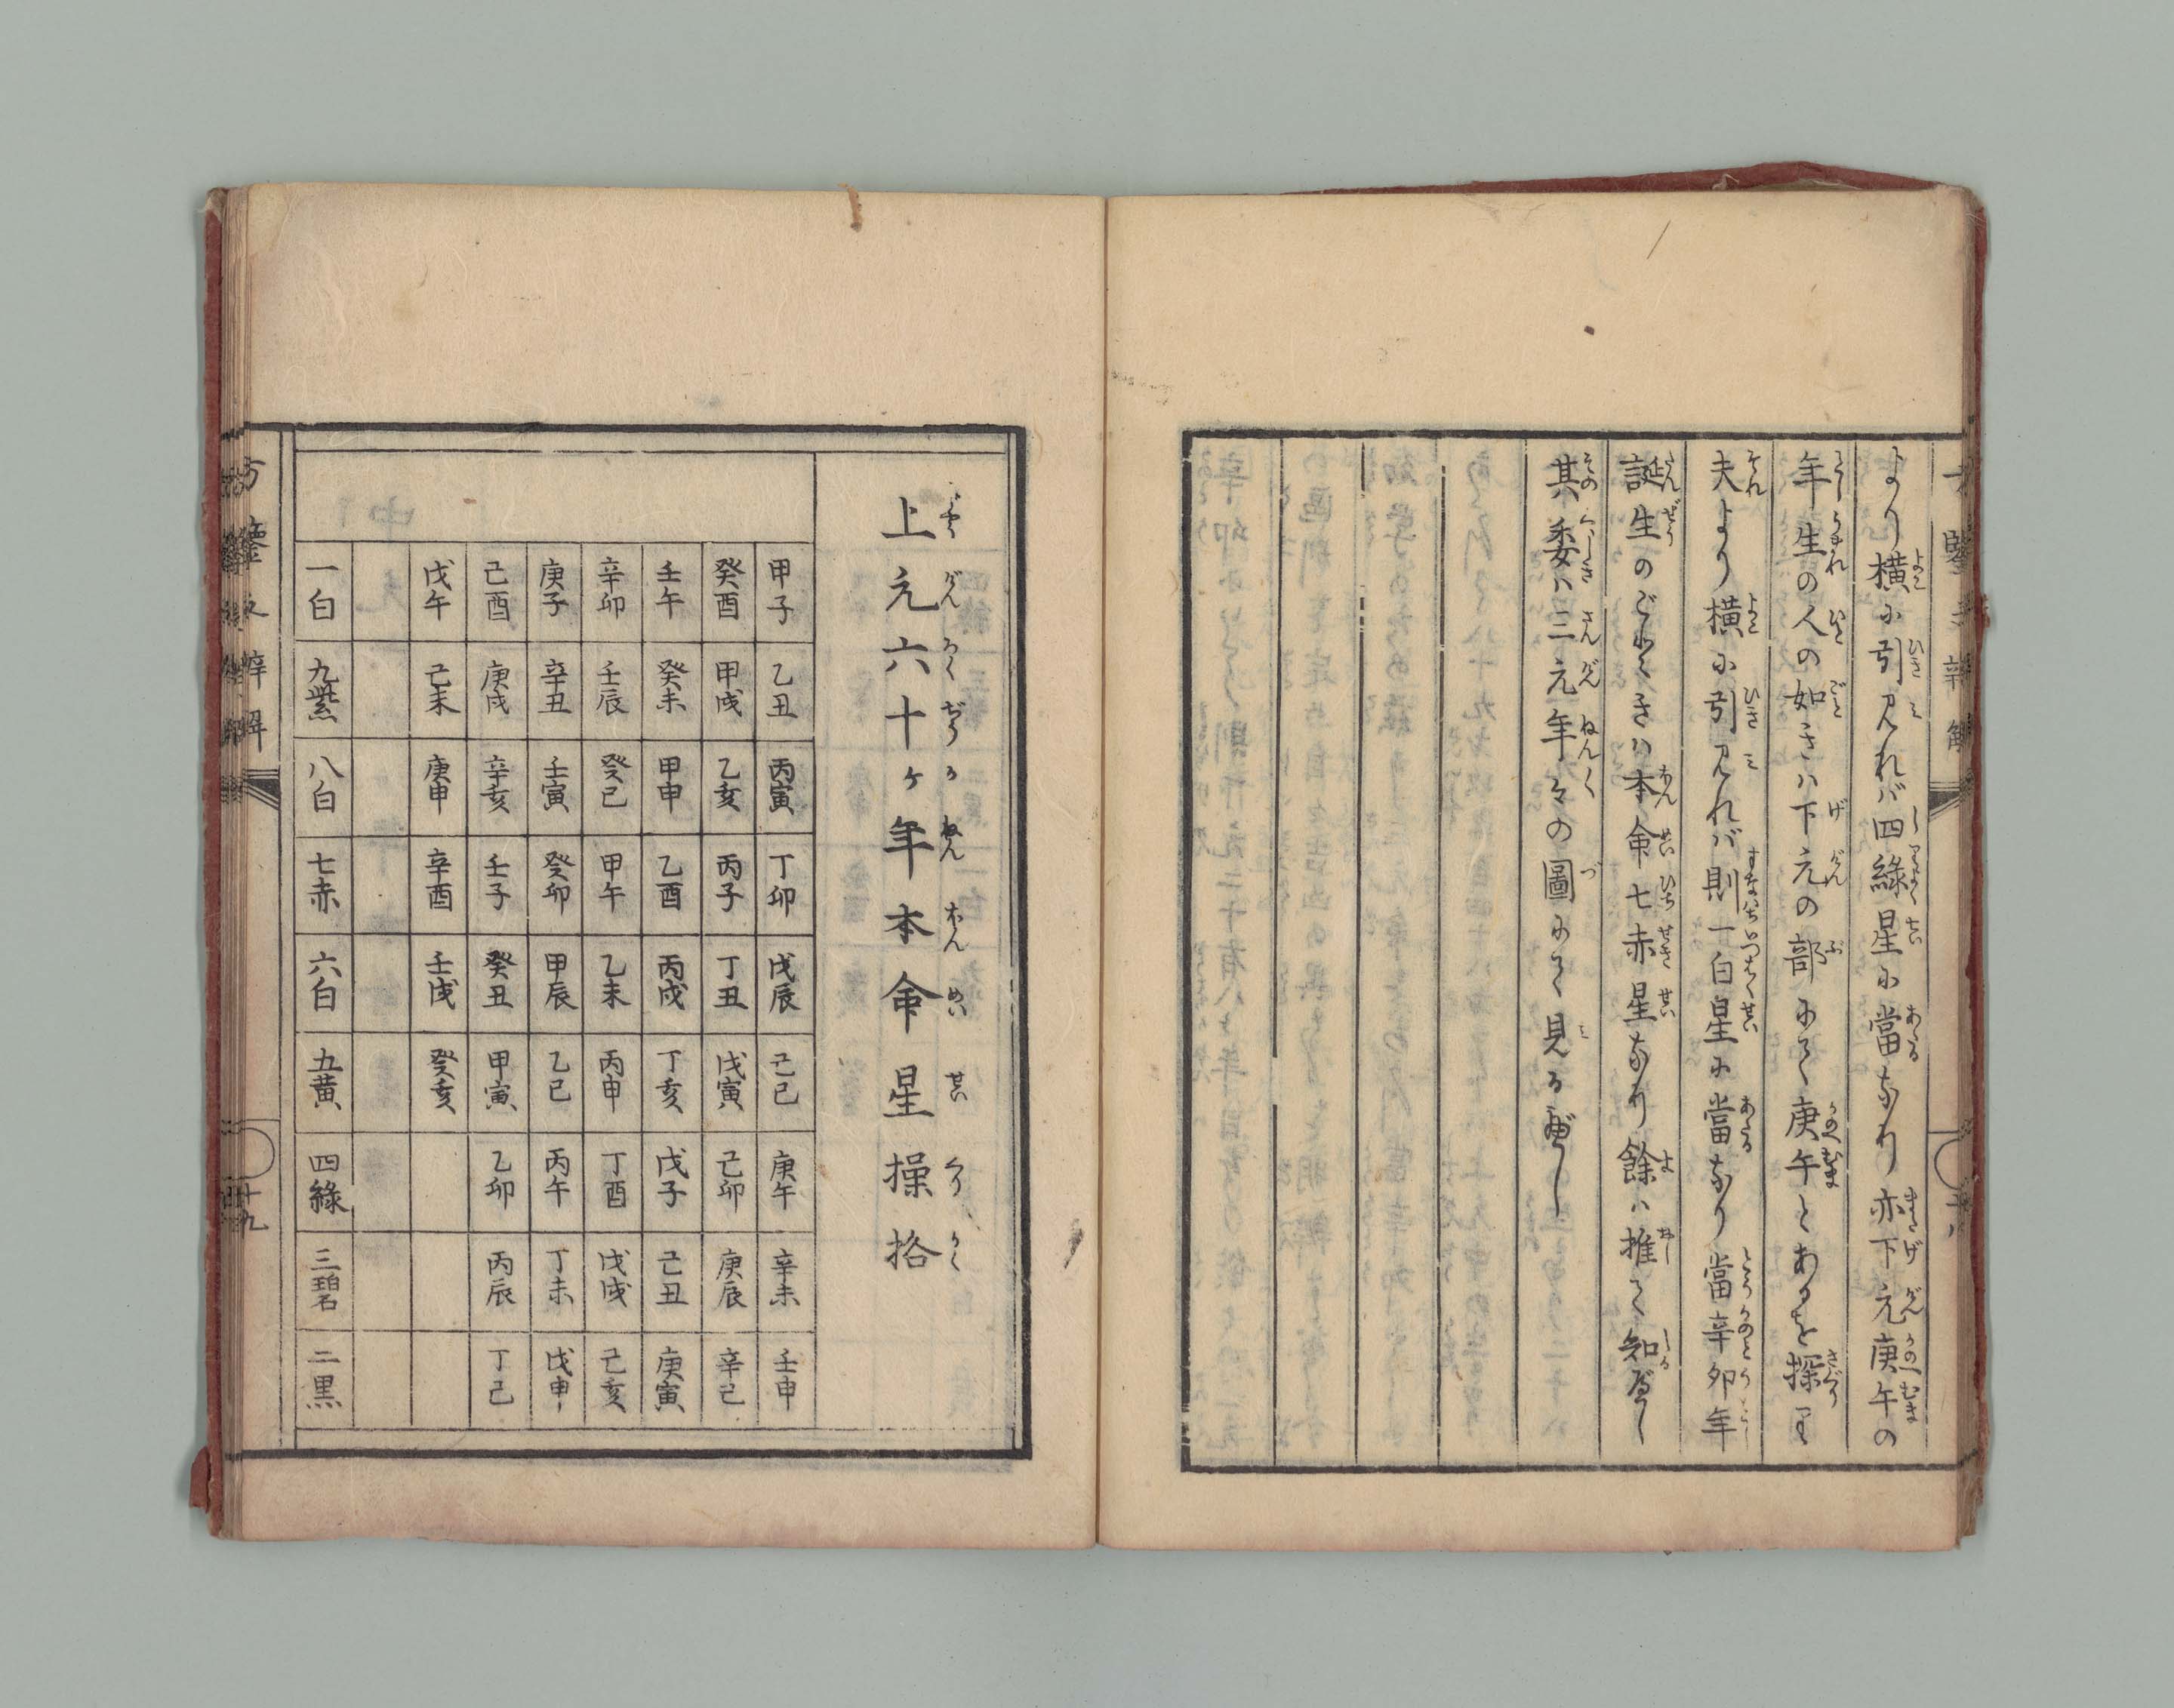 より横に引見れバ四綠星に當るなり亦下元庚午の
年生の人の如きハ下元の部にて庚午とあるを探り
夫より横に引見れバ則一白星に當るなり當辛卯年
誕生のごときハ本命七赤星なり餘ハ推て知べし
其委ハ三元年々の圖にて見る べし
上元六十ヶ年本命星操格
甲子 乙丑 丙寅 丁卯 戊辰 己巳 庚午 辛未 壬申
癸酉 甲戌 乙亥 丙子 丁丑 戊寅 己卯 庚辰 辛巳
壬午 癸未 甲申 乙酉 丙戌 丁亥 戊子 己丑 庚寅
辛卯 壬辰 癸巳 甲午 乙未 丙申 丁酉 戊戌 己亥
庚子 辛丑 壬寅 癸卯 甲辰 乙巳 丙午 丁未 戊申
己酉 庚戌 辛亥 壬子 癸丑 甲寅 乙卯 丙辰 丁巳
戊午 己未 庚申 辛酉 壬戌 癸亥
一白 九紫 八白 七赤 六白 五黄 四綠 三碧 二黒